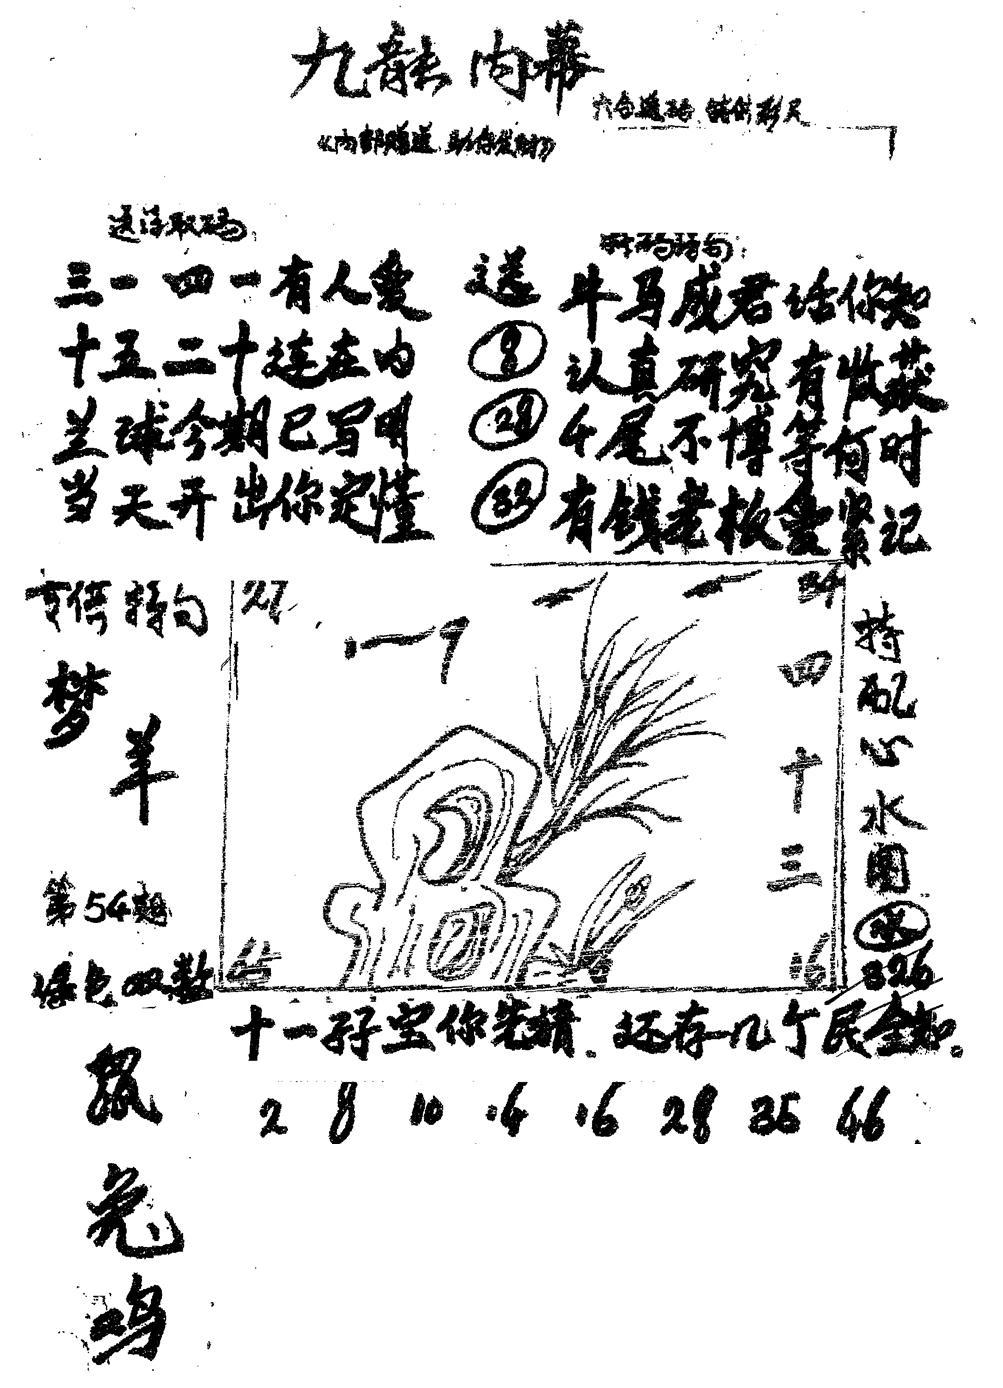 九龍内幕
六合透码 特供彩尺
《内部赠送 助你发财》
送诗取码:
三一四一有人爱
十五二十连在内
兰球今期已写明
当天开出你定懂
送
8
28
32
新码诗句:
牛马威君话你知
认真研究有收获
牛尾不博等何时
有钱老板爱紧记
玄僖特句
梦
羊
第54期
绿色 双数
鼠
兔
鸡
27
34
一
四
十
三
45
16
特
配
心
水
图
326
十一孖宝你先猜.还存几个民全知。
2 8 10 14 16 28 35 46